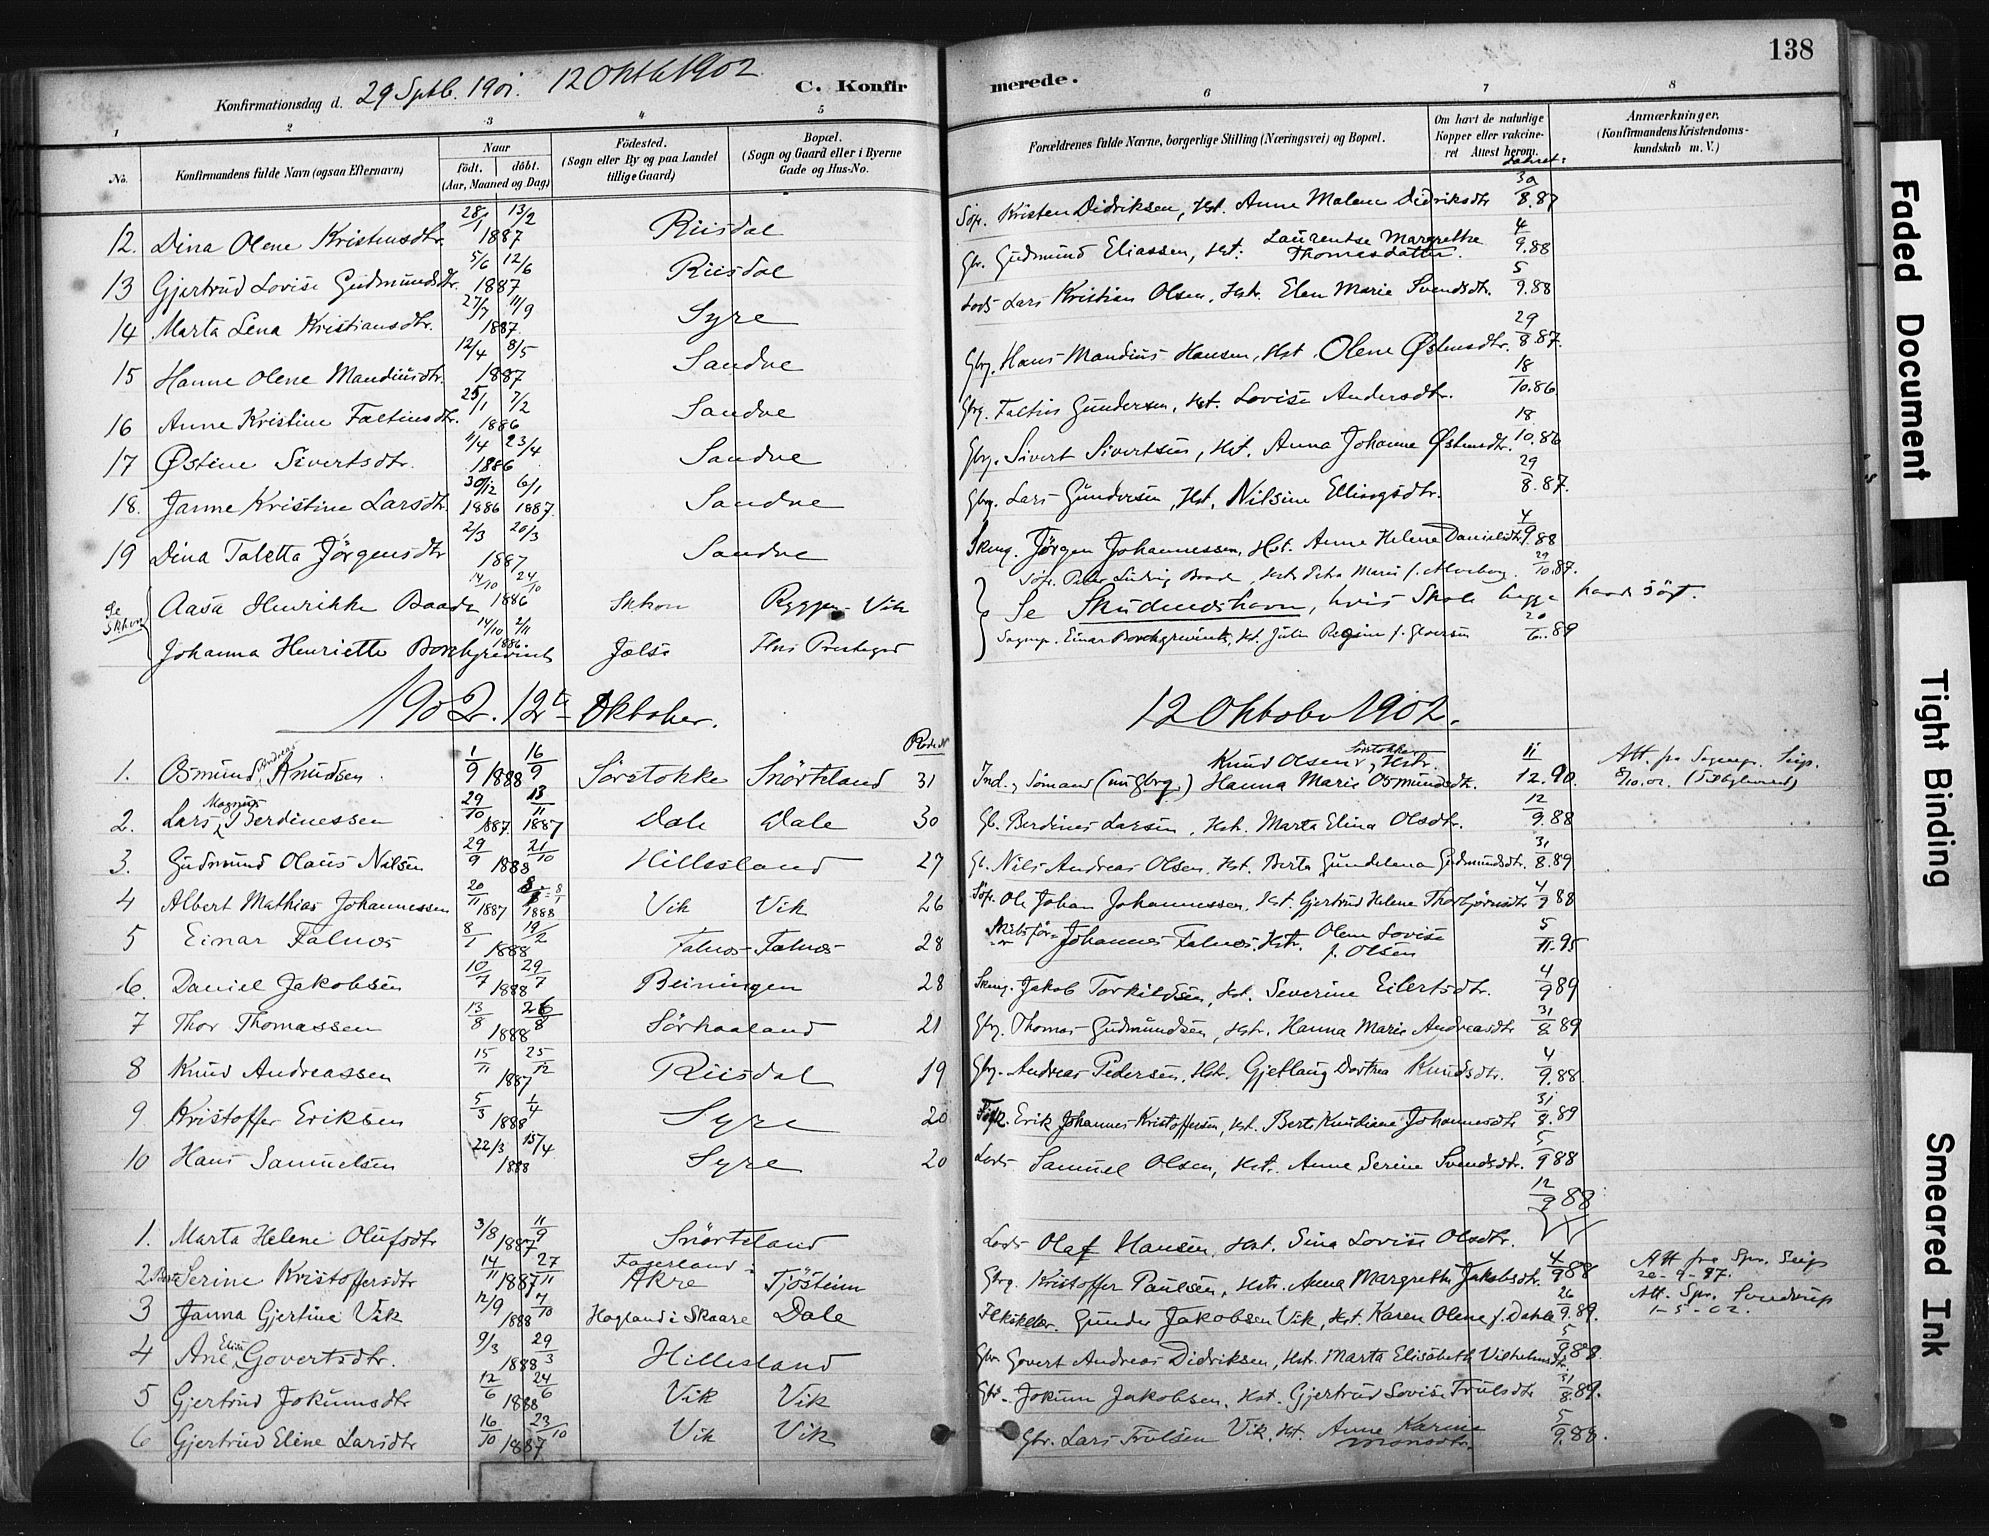 138
Konfirmationsdag d. 29 Septb. 1901. 12 Oktb 1902
C. Konfirmerede.
1 2 3 4 5 6 7 8
No.
Konfirmandens fulde Navn (ogsaa Efternavn)
Naar født. døbt. (Aar, Maaned og Dag)
Fødested. (Sogn eller By og paa Landet tillige Gaard)
Bopæl. (Sogn og Gaard eller i Byerne Gade og Hus-No.
Forældrenes fulde Navne, borgerlige Stilling (Næringsvei) og Bopæl.
Om havt de naturlige Kopper eller vakcineret Attest herom.
Anmærkninger. (Konfirmandens Kristendomskundskab m. V.)
12. Dina Olene Kristensdtr. 28/1 13/2 1887 Riisdal Kristen Didriksen, Hst. Anne Malene Didriksdtr 30/8.87
13 Gjertrud Lovise Gudmundsdtr. 5/6 12/6 1887 Riisdal Gbr. Gudmund Eliassen, Hst. Laurentse Margrethe Thomesdatter. 4/9.88
14 Marta Lena Kristiansdtr. 27/7 11/9 1887 Syre Lods Lars Kristian Olsen, Hstr. Elen Marie Svendsdtr. 5/9.88
15 Hanne Olene Mandiusdtr. 12/4 8/5 1887 Sandve Gbrg. Hans Mandius Hansen, Hst. Olene Østensdtr. 29/8 87.
16 Anne Kristine Faltinsdtr. 25/1 7/2 1886 Sandve Gbrg. Faltin Gundersen, Hst. Lovise Andersdtr. 18/10.86
17 Østine Sivertsdtr. 11/4 23/4 1886 Sandve Gbrg. Sivert Sivertsen, Hst. Anna Johanne Østensdtr. 18/10.86
18. Janne Kristine Larsdtr 30/12 1886 6/1 1887. Sandve Gbrg. Lars Gundersen, Hst. Nilsine Ellingsdtr. 29/8.87.
19 Dina Taletta Jörgensdtr 2/3 20/3 1887 Sandve Jörgen Johannessen, Hst. Anne Helene Danielsdtr 4/9 88
Se Skhvn Aasa Henrikke Baade 14/10 24/10 1886 Skhvn Vik 29/10.87.
Se Skudeneshavn, hvis Skole begge havde søgt.
Johanna Henriette Borchgrevink 14/10 2/11 1886 Jælse Sognep. Einar Borchgrevink, Hst. Julie Regine f. 20/6.89
1902. 12te Oktober.
12 Oktober 1902.
Rode Nr
1. Osmund Andreas Knudsen. 1/9 16/9 1888 Sörstokke Snörteland 31 Ind., Sömand (nu gbrg.) Knud Olsen Sørstokke, Hstr. Hanna Marie Osmundsdtr. 11/12.90. Att. fra Sognepr. Seip. 8/10.02.
2. Lars Magnus Berdinessen 29/10 1887 13/11 1887 Dale Dale 30 Gb. Berdines Larsen, Hst. Marta Elina Olsdtr. 12/9 88
3. Gudmund Olaus Nilsen 29/9 21/10 1888 Hillesland 27 Gb. Nils Andreas Olsen, Hst. Berta Gundelena Gudmundsdtr. 31/8.89.
4 Albert Mathias Johannessen 20/11 1887 8/1 1888 Vik Vik 26 Ole Johan Johannessen, Hst. Gjertrud Helene Thorbjörnsdtr 4/9 88
5 Einar Falnes 8/1 19/2 1888 Falnes Falnes 28 Johannes Falnes, Hstr. Olene Lovise f. Olsen 5/11.95
6. Daniel Jakobsen 10/7 29/7 1888 Beiningen 28 Jakob Torkildsen, Hst. Severine Eilertsdtr. 4/9 89
7 Thor Thomassen 13/8 26/8 1888 Sörhaaland 21 Gbrg. Thomas Gudmundsen, Hstr. Hanna Marie Andreasdtr 31/8 89
8 Knud Andreassen 15/11 25/12 1887 Riisdal 19 Gbrg. Andreas Pedersen, Hstr. Gjetlaug Dortea Knudsdtr. 4/9.88.
9 Kristoffer Eriksen 5/3 1/4 1888 Syre 20 Erik Johannes Kristoffersen, Hst. Berte Knudiane Johannesdtr 31/8.89
10 Hans Samuelsen 22/3 15/4 1888 Syre 20 Lods Samuel Olsen, Hstr. Anne Serine Svendsdtr. 5/9 88
12/9 88
1. Marta Helene Olufsdtr 3/8 11/9 1887 Snörteland Lods Olaf Hansen, Hst. Sina Lovise Olsdtr.
2 Serine Kristoffersdtr 14/11 27/11 1887 Fagerland Akre Tjösteim Gbrg. Kristoffer Paulsen, Hstr. Anna Margrethe Jakobsdtr. 4/9 88 Att fra Spr. Seip 20-9-97.
3 Janna Gjertine Vik 12/9 7/10 1888 Hogland i Skaare Dale Gunder Jakobsen Vik, Hst. Karen Olene f. Dahle 26/9.89. Att. Spr. 1-5-02.
4 Ane Elise Govertsdtr. 9/3 29/3 1888 Hillesland Gbr Govert Andreas Didriksen, Hstr. Marta Elisabeth Vilhelmsdtr. 5/9 88.
5 Gjertrud Jokumsdtr 12/6 24/6 1888 Vik Vik Gbr. Jokum Jakobsen, Hst. Gjertrud Lovise Trulsdtr 31/8.89.
6 Gjertrud Eline Larsdtr 16/10 23/10 1887 Vik Vik Gbr. Lars Trulsen Vik, Hst. Anne Karine Monsdtr. 5/9.88.
Faded Document
Tight Binding
Smeared Ink